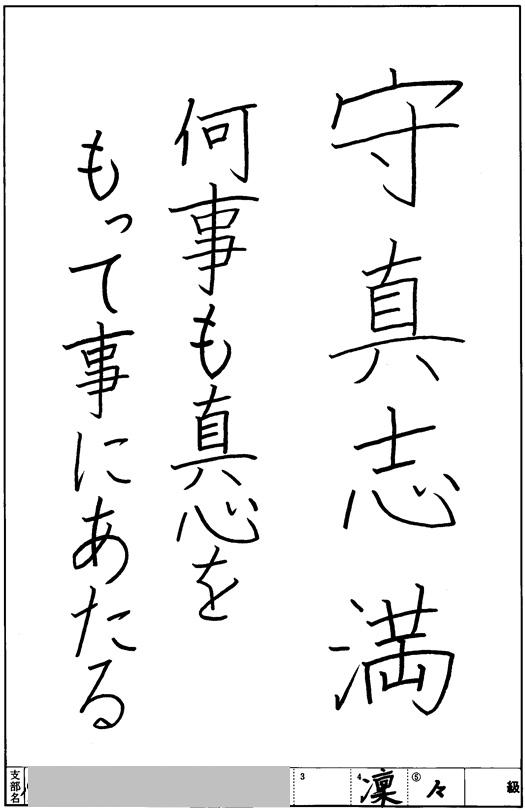 守真志満
何事も真心を
もって事にあたる
支部名
3
4 凜
⑤ 々
級